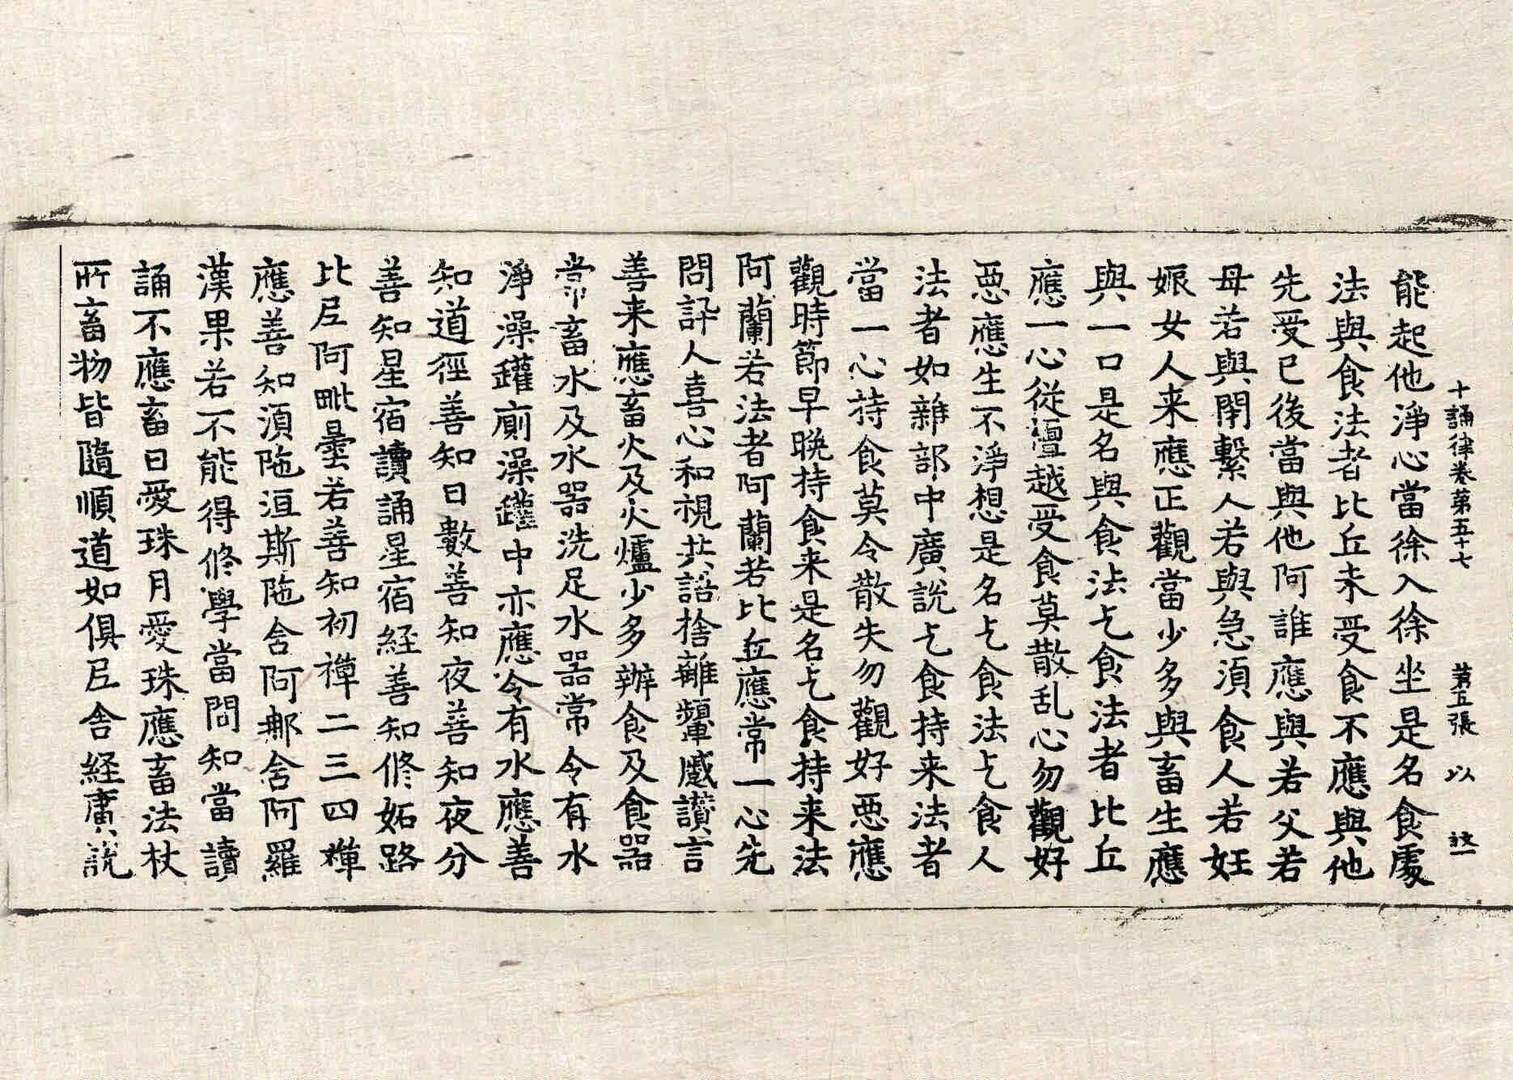 十誦律卷第五十七 第五張 以
能起他淨心當徐入徐坐是名食處
法與食法者比丘未受食不應與他
先受已後當與他阿誰應與若父若
母若與閉繫人若與急湏食人若妊
娠女人来應正觀當少多與畜生應
與一口是名與食法乞食法者比丘
應一心從檀越受食莫散乱心勿觀好
惡應生不淨想是名乞食法乞食人
法者如雜部中廣說乞食持来法者
當一心持食莫令散失勿觀好惡應
觀時節早晚持食来是名乞食持来法
阿蘭若法者阿蘭若比丘應常一心先
問訊人喜心和視共語捨離顰蹙讃言
善来應畜火及火爐少多辦食及食器
常畜水及水器洗足水器常令有水
淨澡鑵廁澡鑵中亦應令有水應善
知道徑善知日數善知夜善知夜分
善知星宿讀誦星宿経善知修妬路
比尼阿毗曇若善知初禪二三四禪
應善知湏陁洹斯陁含阿那含阿羅
漢果若不能得修學當問知當讀
誦不應畜日愛珠月愛珠應畜法杖
所畜物皆隨順道如俱尼舍経廣說